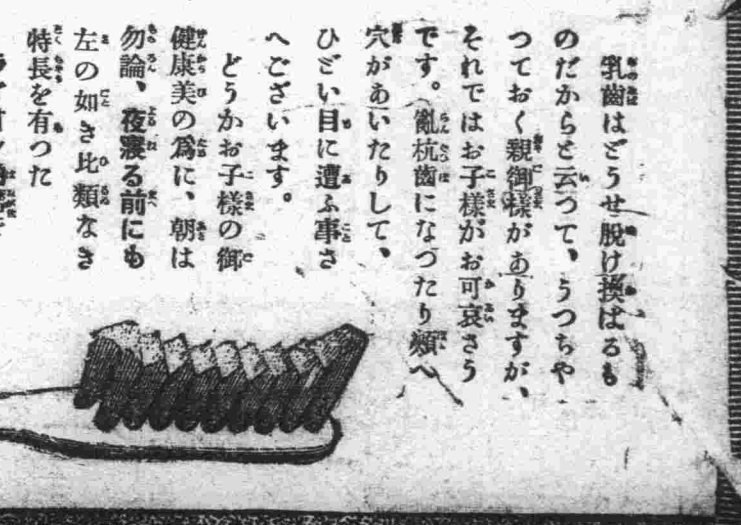 乳歯はどうせ脱け換はるも
のだからと云つて、うつちや
つておく親御様がありますが、
それではお子様がお可哀さう
です。亂杭歯になつたり頬へ
穴があいたりして、
ひどい目に遭ふ事さ
へございます。
どうかお子様の御
健康美の爲に、朝は
勿論、夜寢る前にも
左の如き比類なき
特長を有つた